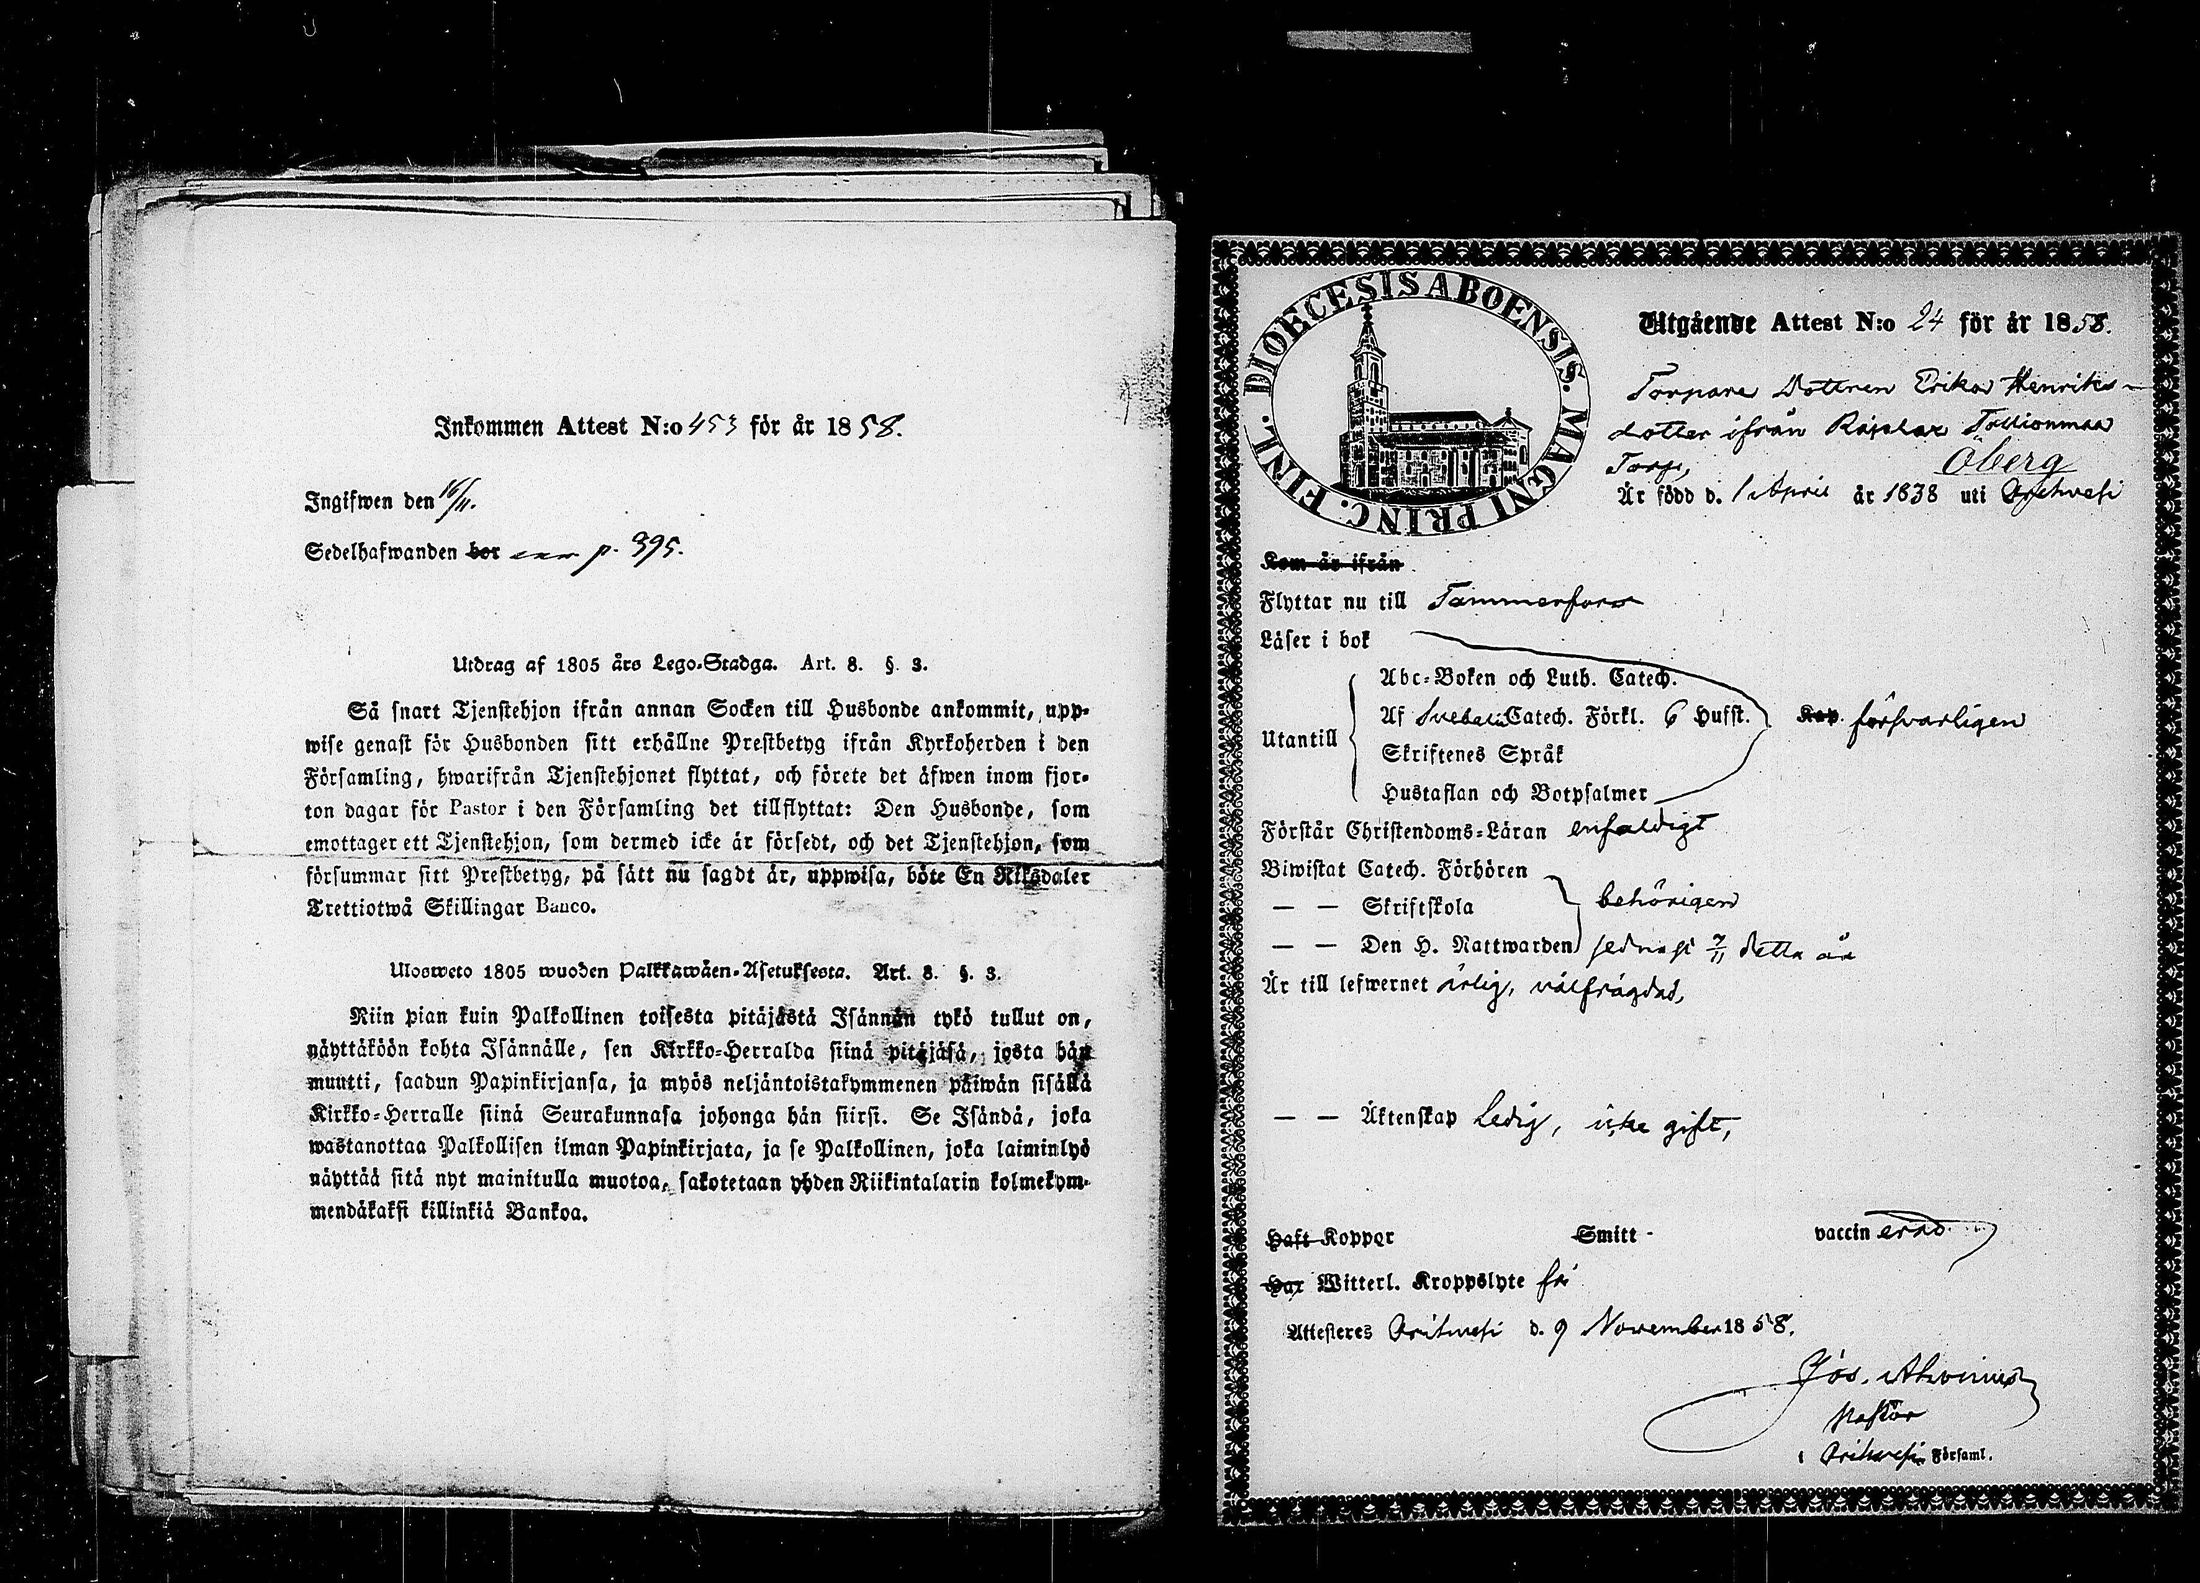 Inkommen Attest N:o 453 för år 1858.
Ingifwen den 16/11.
Sedelhafwanden bor p. 395.
Utdrag af 1805 års Lego-Stadga. Art. 8. §. 3.
Så snart Tjenstehjon ifrån annan Socken till Husbonde ankommit, upp-
wise genast för Husbonden sitt erhållne Prestbetyg ifrån Kyrkoherden i den
Församling, hwarifrån Tjenstehjonet flyttat, och förete det äfwen inom fjor-
ton dagar för Pastor i den Församling det tillflyttat: Den Husbonde, som
emottager ett Tjenstehjon, som dermed icke är försedt, och det Tjenstehjon, som
försummar sitt Prestbetyg, på sätt nu sagdt är, uppwisa, böte En Riksdaler
Trettiotwå Skillingar Banco.
Ulosweto 1805 wuoden Palkkawäen-Asetuksesta. Art. 8. §. 3.
Niin pian kuin Palkollinen toisesta pitäjästä Isännän tykö tullut on,
näyttäköön kohta Isännälle, sen Kirkko-Herralda siinä pitäjäsä, josta hän
muutti, saadun Papinkirjansa, ja myös neljäntoistakymmenen päiwän sisällä
Kirkko-Herralle siinä Seurakunnasa johonga hän siirsi. Se Isändä, joka
wastanottaa Palkollisen ilman Papinkirjata, ja se Palkollinen, joka laiminlyö
näyttää sitä nyt mainitulla muotoa, sakotetaan yhden Riikintalarin kolmekym-
mendäkaksi killinkiä Bankoa.
DIOECESIS ABOENSIS. MAGNI PRINC. FINL.
Utgående Attest N:o 24 för år 1858.
Torpare Dottren Erika Henriks-
dotter ifrån Rajalax Tollionmaa
Torp, Öberg
Är född d. 1 April år 1838 uti Orihvesi
Kom år ifrån
Flyttar nu till Tammerfors
Läser i bok
Abc-Boken och Luth. Catech.
Af Svebelii Catech. Förkl. 6 Hufst. Kap. försvarligen
Utantill
Skriftenes Språk
Hustaflan och Botpsalmer
Förstår Christendoms-Läran enfaldigt
Biwistat Catech. Förhören
— — Skriftskola behörigen
— — Den H. Nattwarden sednast 7/11 detta år
Är till lefwernet ärlig, välfrägdad,
— — Äktenskap Ledig, icke gift,
Haft Koppor Smitt - vaccinerad.
Har Witterl. Kroppslyte fri
Attesteres Orihvesi d. 9 November 1858.
Jos. Ahonius
Pastor
i Orihvesi Församl.